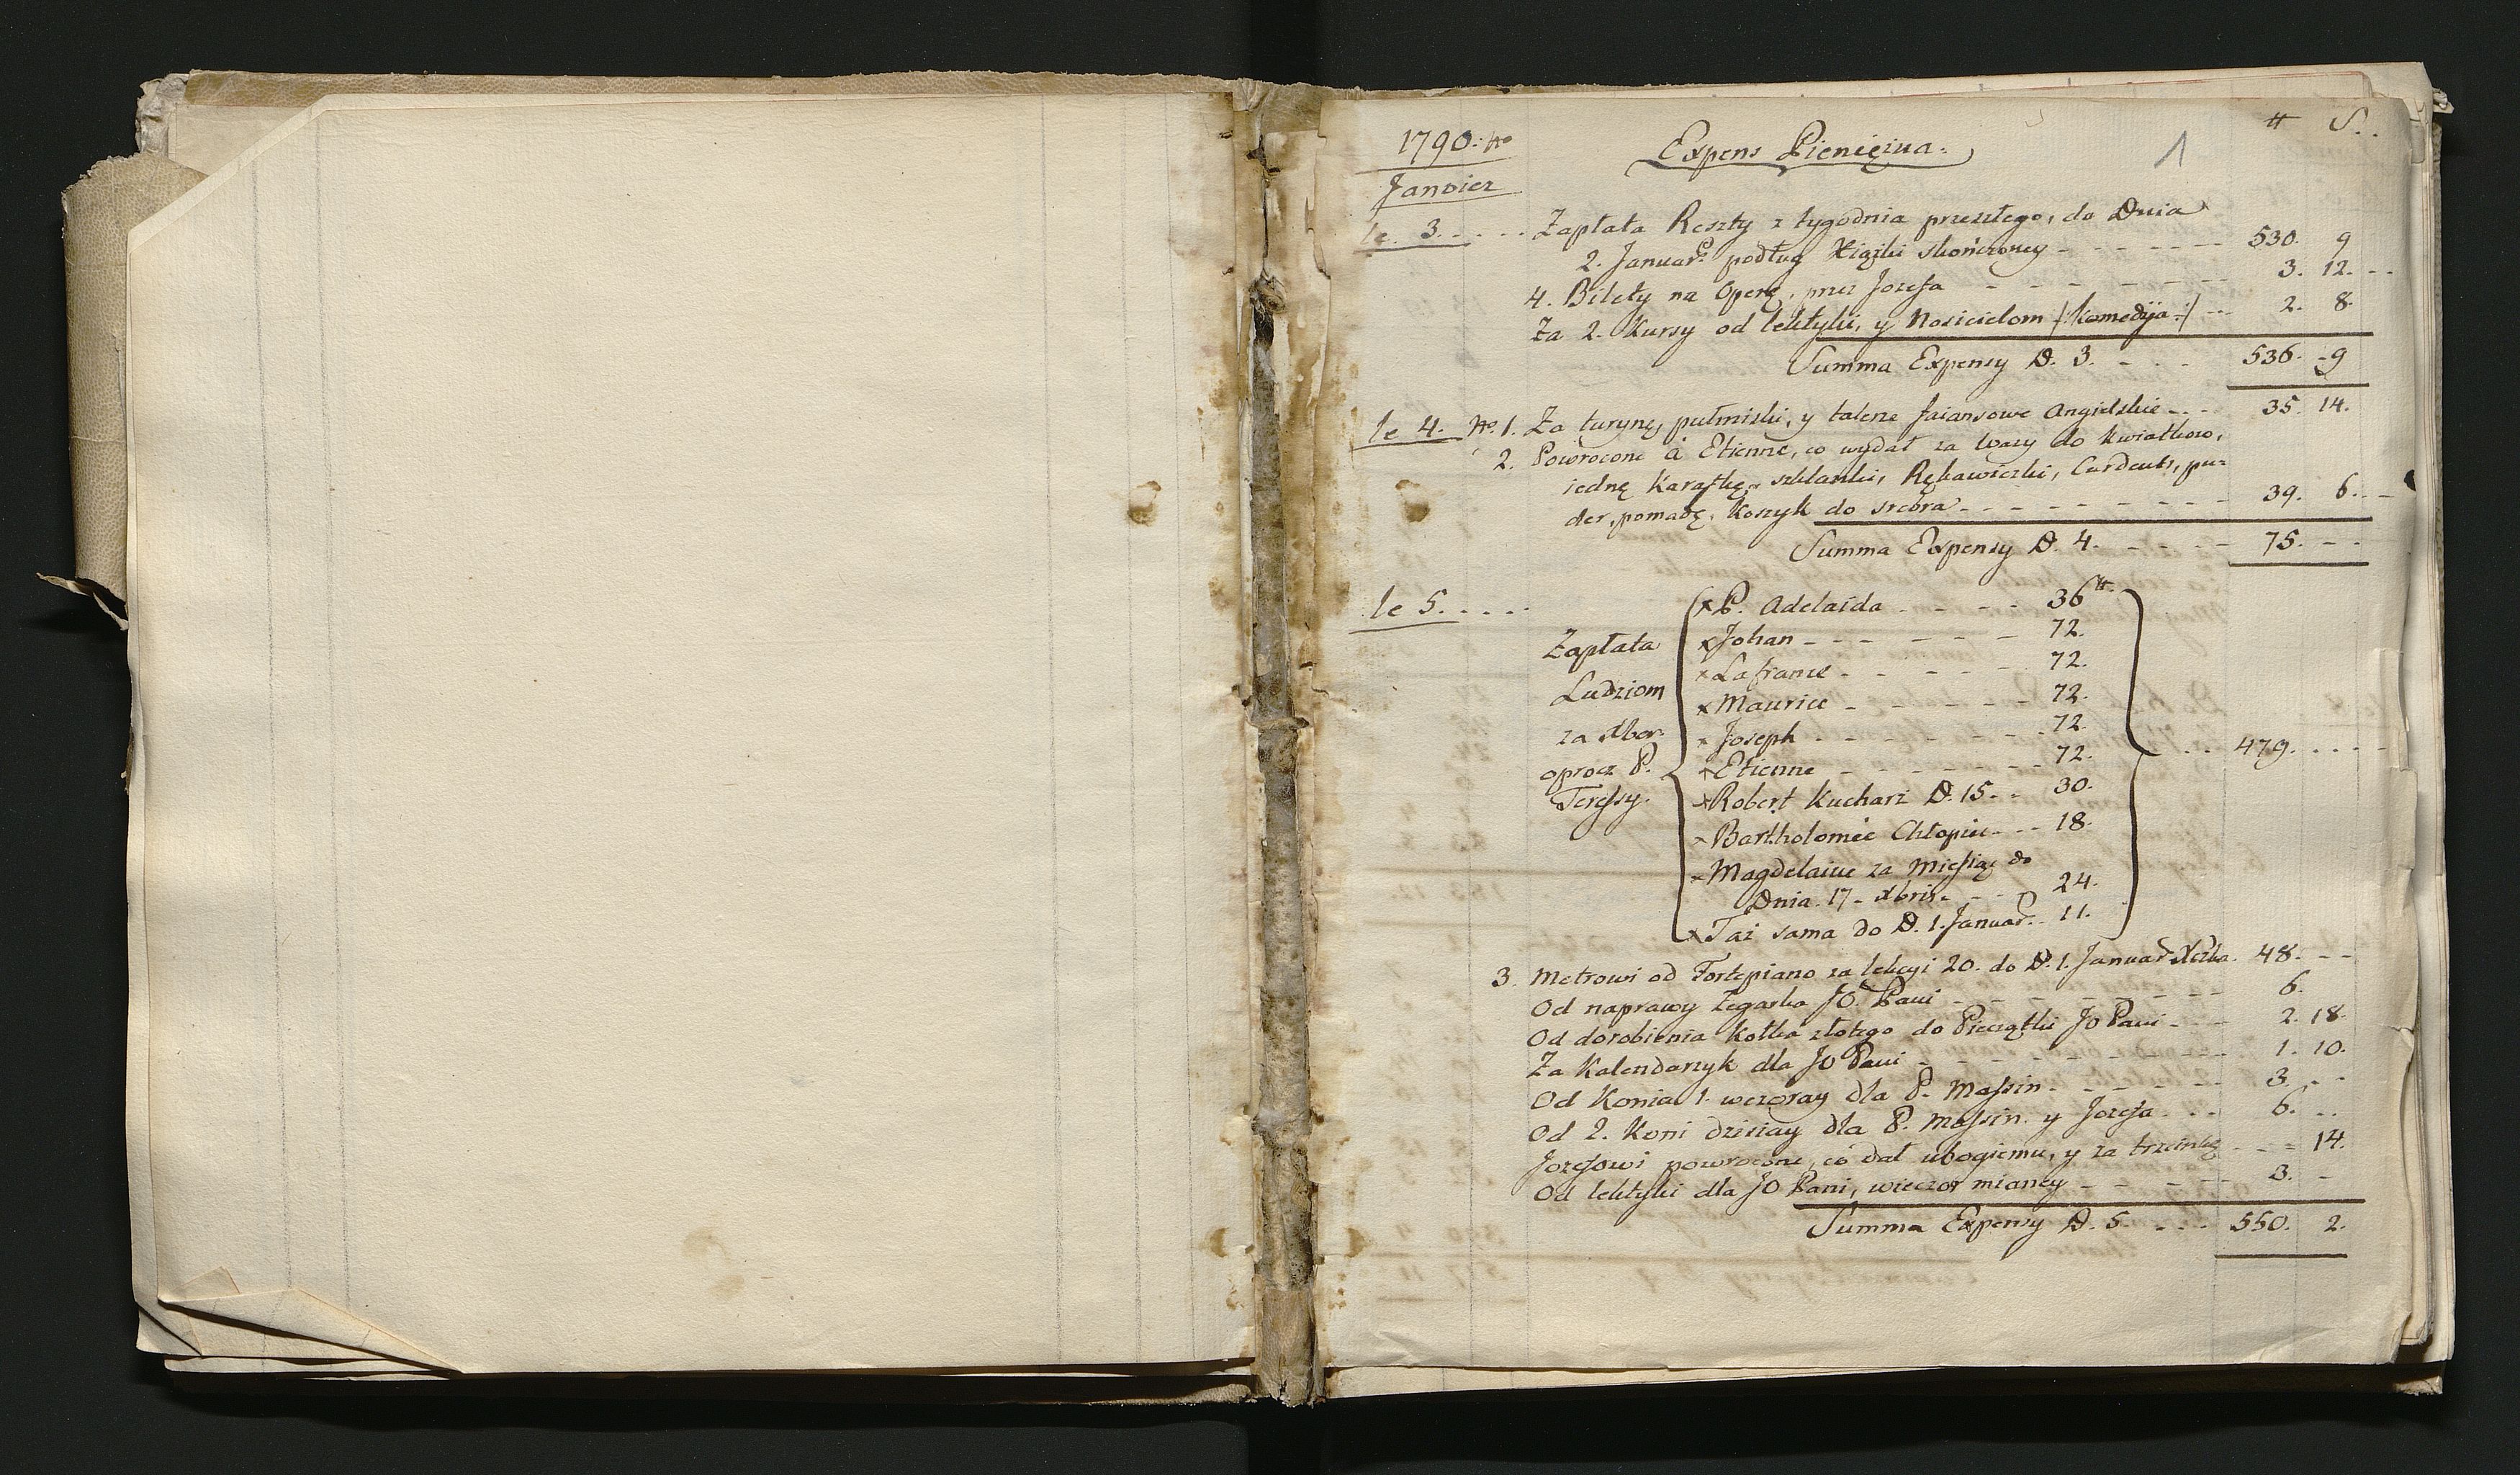 1790. Aº Expens Pieniężna. 1 # S..
Janvier
le 3. Zapłata Reszty z tygodnia przeszłego, do Dnia
2. Januar. podług Xiążki skończoney 530. 9
4. Bilety na Operę, przez Jozefa 3. 12.
Za 2. Kursy od lektyki, y Nosicielom /:Komedija:/ 2. 8.
Summa Expensy D. 3. 536. 9
le 4. Nº 1. Za turynę, pułmiski, y talerze faiansowe Angielskie 35. 14.
2. Powrocone à Etienne, co wydał za Wazy do kwiatkow,
iednę Karafkę, szklanki, Rękawiczki, Curdents, pu=
der, pomadę, Koszyk do srebra 39. 6.
Summa Expensy D. 4. 75. - -
le 5. Zapłata Ludziom za Xber. oprocz P. Teressy.
x P. Adelaida 36 #.
x Johan 72.
x Lafrance 72.
x Maurice 72.
x Joseph 72.
x Etienne 72.
x Robert Kucharz D. 15. 30.
x Bartholomée Chłopiec 18.
x Magdelaine za Miesiąc do
Dnia 17. Xbris. 24.
x Taż sama do D. 1. Januar. 11.
479.
3. Metrowi od Fortepiano za lekcyi 20. do D. 1. Januar. 48. - -
Od naprawy Zegarka JO. Pani 6.
Od dorobienia Kołka złotego do Pieczątki JO Pani 2. 18.
Za Kalendarzyk dla JO Pani 1. 10.
Od Konia 1. wczoray dla P. Massin 3. - -
Od 2. Koni dzisiay dla P. Massin. y Jozefa 6. ..
Jozefowi powrocone, co dał ubogiemu, y za trzcinkę - 14.
Od lektyki dla JO Pani, wieczor mianey 3. -
Summa Expensy D. 5. 550. 2.